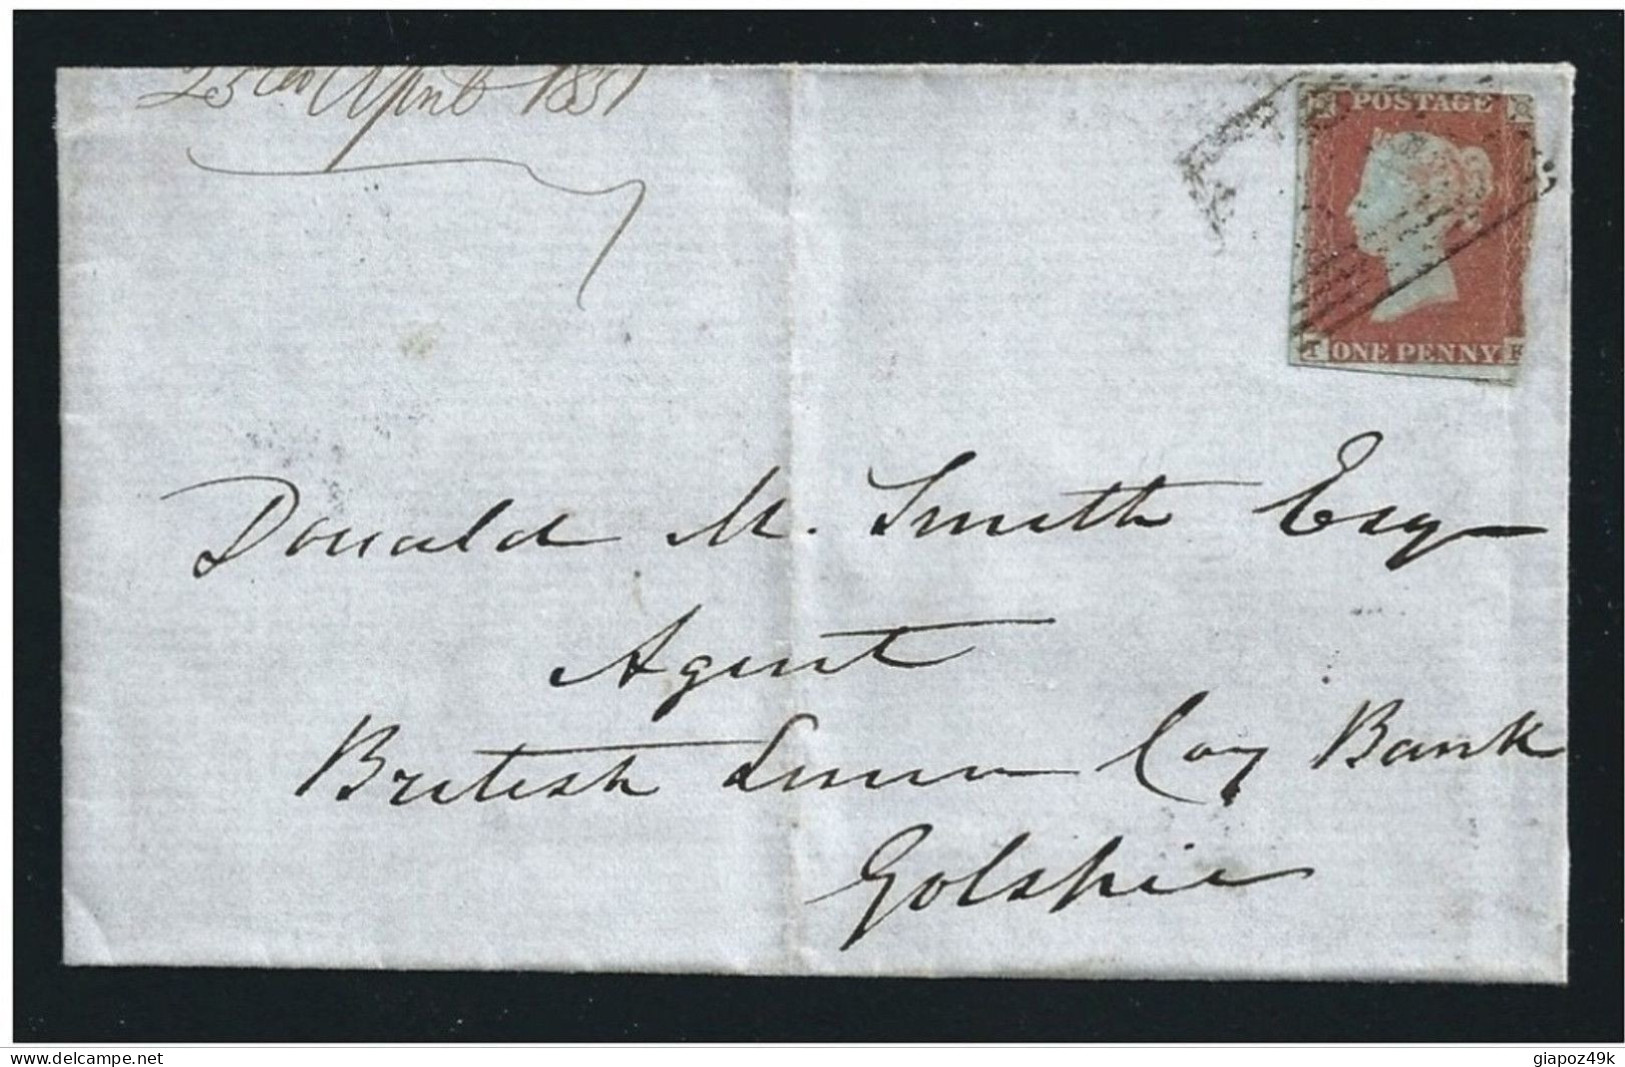 25th April 1851
POSTAGE
ONE PENNY
Donald M. Smith Esq
Agent
British Linen Coy Bank
Golspie
www.delcampe.net
giapoz49k